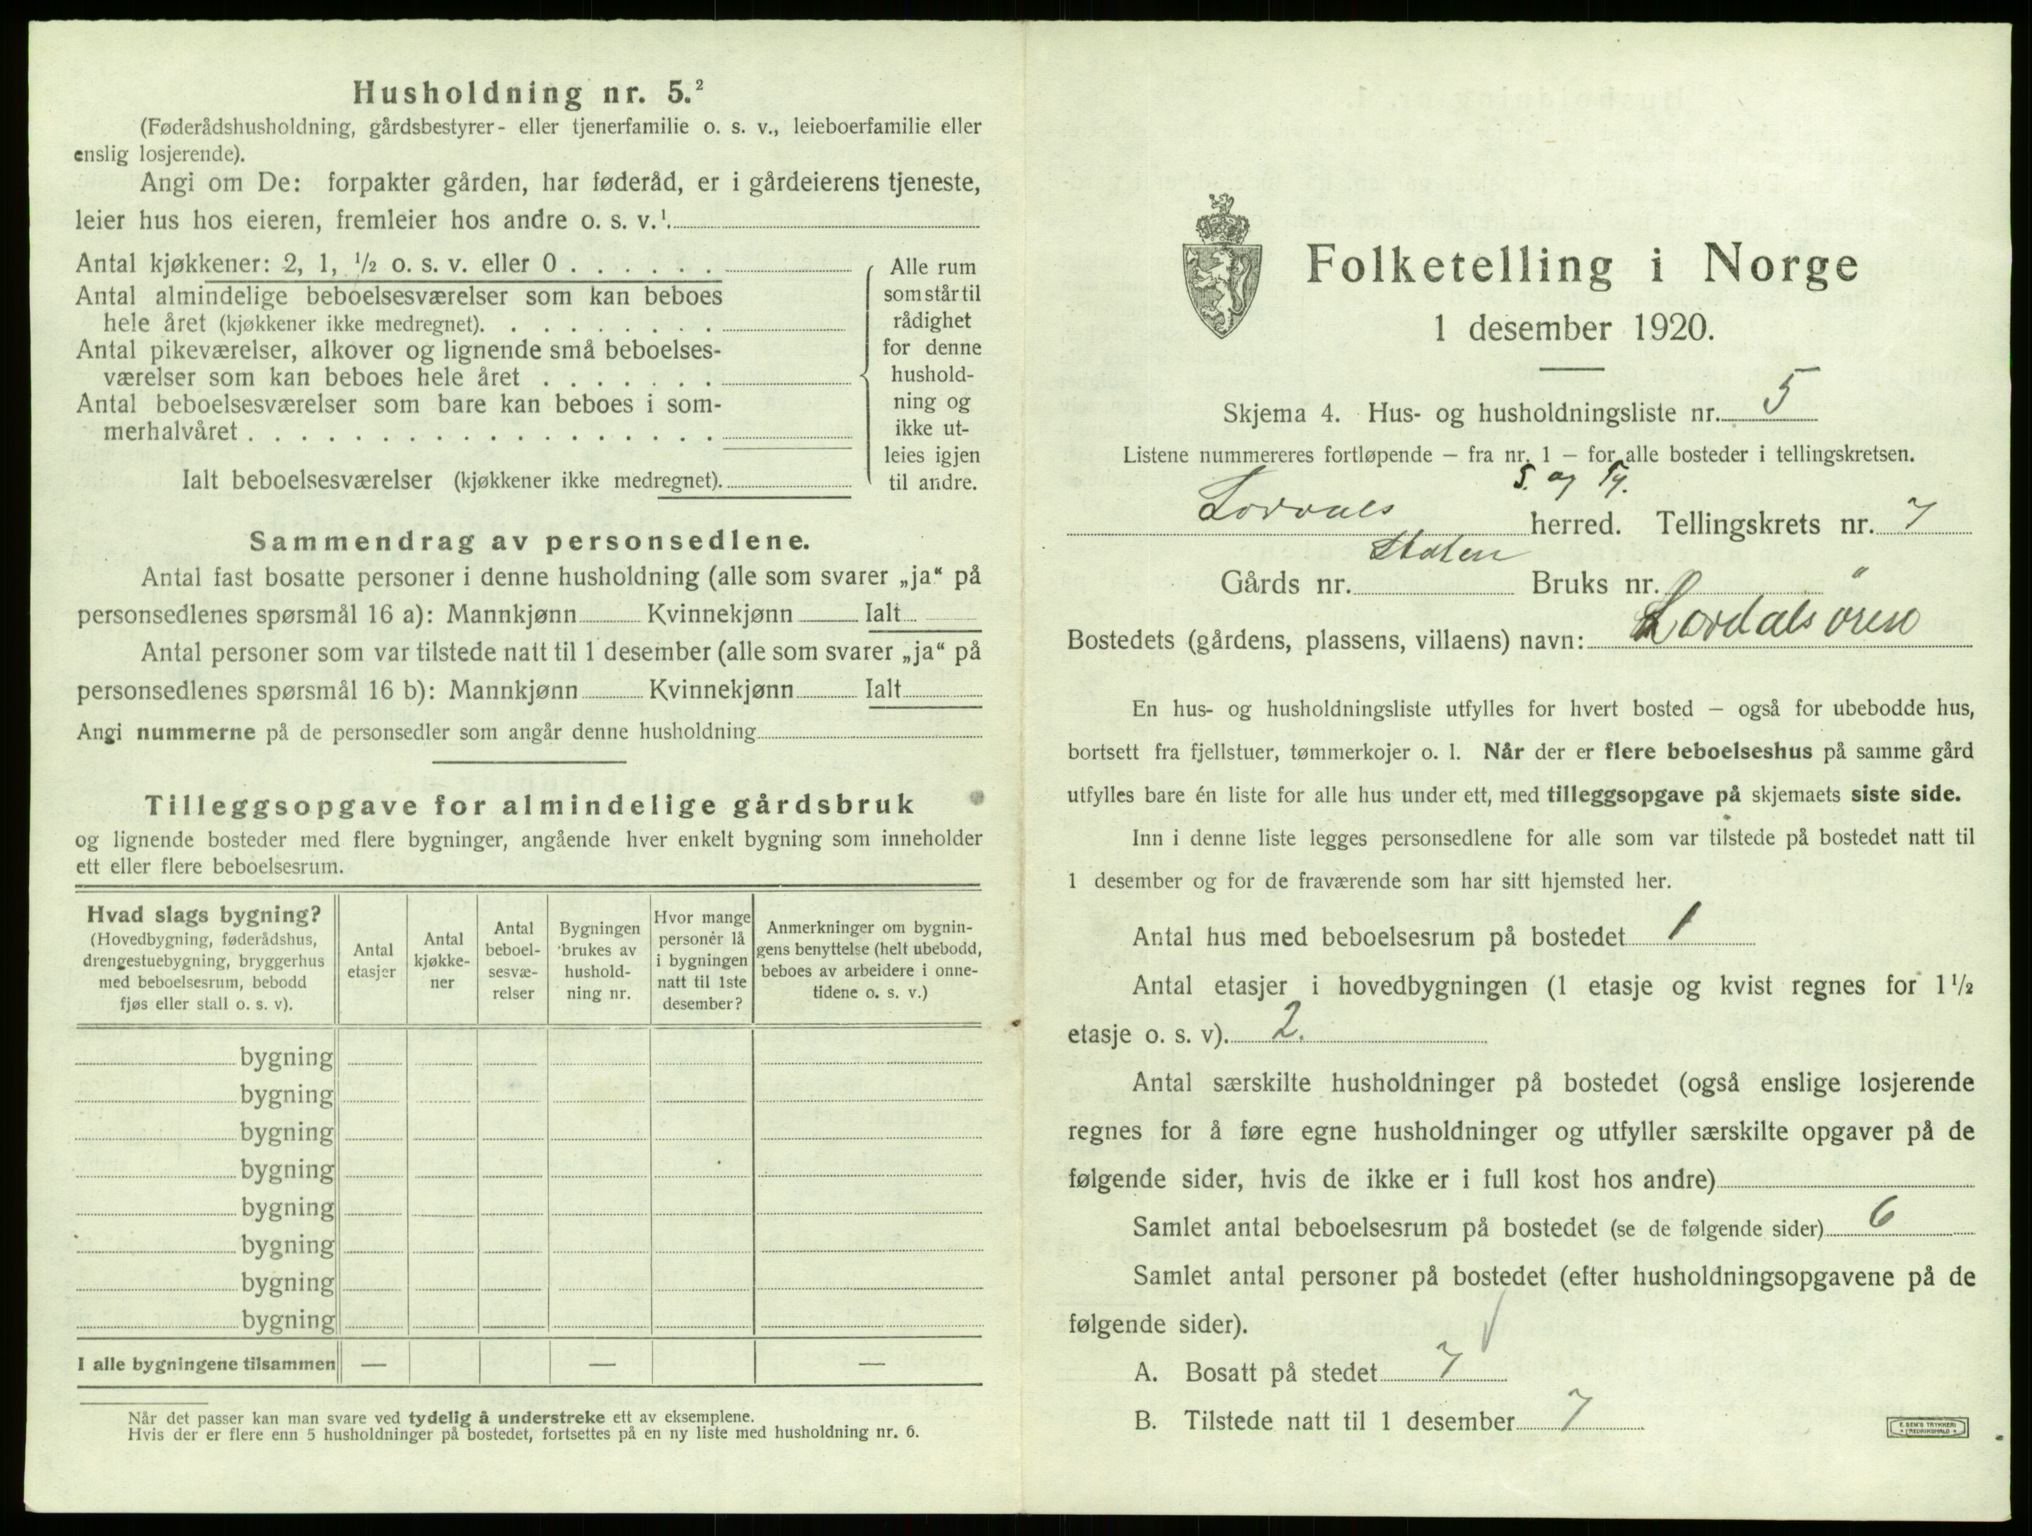 Husholdning nr. 5.²
(Føderådshusholdning, gårdsbestyrer- eller tjenerfamilie o. s. v., leieboerfamilie eller
enslig losjerende).
Angi om De: forpakter gården, har føderåd, er i gårdeierens tjeneste,
leier hus hos eieren, fremleier hos andre o. s. v.¹
Antal kjøkkener: 2, 1, ½ o. s. v. eller 0
Antal almindelige beboelsesværelser som kan beboes
hele året (kjøkkener ikke medregnet).
Antal pikeværelser, alkover og lignende små beboelses-
værelser som kan beboes hele året
Antal beboelsesværelser som bare kan beboes i som-
merhalvåret
Ialt beboelsesværelser (kjøkkener ikke medregnet).
Alle rum
som står til
rådighet
for denne
hushold-
ning og
ikke ut-
leies igjen
til andre.
Sammendrag av personsedlene.
Antal fast bosatte personer i denne husholdning (alle som svarer „ja“ på
personsedlenes spørsmål 16 a): Mannkjønn Kvinnekjønn Ialt
Antal personer som var tilstede natt til 1 desember (alle som svarer „ja“ på
personsedlenes spørsmål 16 b): Mannkjønn Kvinnekjønn Ialt
Angi nummerne på de personsedler som angår denne husholdning
Tilleggsopgave for almindelige gårdsbruk
og lignende bosteder med flere bygninger, angående hver enkelt bygning som inneholder
ett eller flere beboelsesrum.
Hvad slags bygning?
(Hovedbygning, føderådshus,
drengestuebygning, bryggerhus
med beboelsesrum, bebodd
fjøs eller stall o. s. v).
Antal
etasjer
Antal
kjøkke-
ner
Antal
beboel-
sesvæ-
relser
Bygningen
brukes av
hushold-
ning nr.
Hvor mange
personer lå
i bygningen
natt til 1ste
desember?
Anmerkninger om bygnin-
gens benyttelse (helt ubebodd,
beboes av arbeidere i onne-
tidene o. s. v.)
bygning
bygning
bygning
bygning
bygning
bygning
bygning
bygning
I alle bygningene tilsammen — — —
Når det passer kan man svare ved tydelig å understreke ett av eksemplene.
Hvis der er flere enn 5 husholdninger på bostedet, fortsettes på en ny liste med husholdning nr. 6.
Folketelling i Norge
1 desember 1920.
Skjema 4. Hus- og husholdningsliste nr. 5
Listene nummereres fortløpende — fra nr. 1 — for alle bosteder i tellingskretsen.
S. og Fj.
herred. Tellingskrets nr. 7
Gårds nr. Bruks nr.
Bostedets (gårdens, plassens, villaens) navn:
En hus- og husholdningsliste utfylles for hvert bosted — også for ubebodde hus,
bortsett fra fjellstuer, tømmerkojer o. l. Når der er flere beboelseshus på samme gård
utfylles bare én liste for alle hus under ett, med tilleggsopgave på skjemaets siste side.
Inn i denne liste legges personsedlene for alle som var tilstede på bostedet natt til
1 desember og for de fraværende som har sitt hjemsted her.
Antal hus med beboelsesrum på bostedet 1
Antal etasjer i hovedbygningen (1 etasje og kvist regnes for 1½
etasje o. s. v). 2.
Antal særskilte husholdninger på bostedet (også enslige losjerende
regnes for å føre egne husholdninger og utfyller særskilte opgaver på de
følgende sider, hvis de ikke er i full kost hos andre)
Samlet antal beboelsesrum på bostedet (se de følgende sider) 6
Samlet antal personer på bostedet (efter husholdningsopgavene på de
følgende sider).
A. Bosatt på stedet 7
B. Tilstede natt til 1 desember 7
E. SEM'S TRYKKERI
FREDRIKSHALD